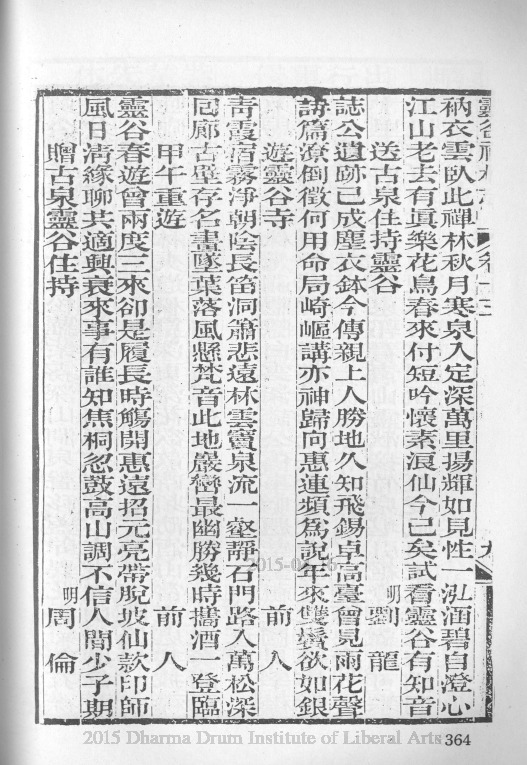 靈谷禪林志 卷十三 九
衲衣雲臥此禪林秋月寒泉入定深萬里揚輝如見性一泓涵碧自澄心
江山老去有真樂花鳥春來付短吟懷素浪仙今已矣試看靈谷有知音
送古泉住持靈谷 明劉龍
誌公遺跡已成塵衣鉢今傳親上人勝地久知飛錫卓高臺曾見雨花聲
詩篇潦倒徵何用命局崎嶇講亦神歸向惠連頻為說年來雙鬢欲如銀
遊靈谷寺 前人
青霞宿霧淨朝陰長笛洞簫悲遠林雲竇泉流一壑靜石門路入萬松深
回廊古壁存名畫墜葉落風懸梵音此地嚴巒最幽勝幾時攜酒一登臨
甲午重遊 前人
靈谷春遊曾兩度三來卻是履長時觴開惠遠招元亮帶脫坡仙款印師
風日清緣聊共適興衰來事有誰知焦桐忽鼓高山調不信人間少子期
贈古泉靈谷住持 明周倫
2015-05-16
2015 Dharma Drum Institute of Liberal Arts
364